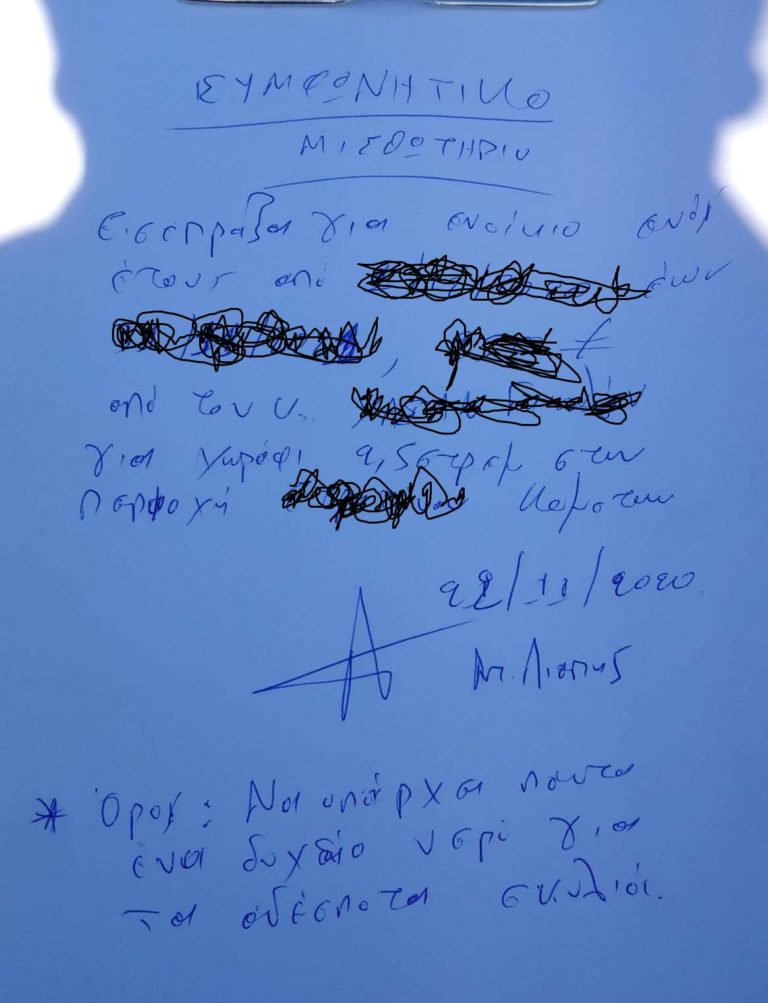 ΣΥΜΦΩΝΗΤΙΚΟ
ΜΙΣΘΩΤΗΡΙΟ
Εισέπραξα για ενοίκιο ενός
έτους από έων
€
από τον κ.
για χωράφι 9,5 στρεμ στην
περιοχή
22/11/2020
* Όρος: Να υπάρχει πάντα
ένα δοχείο νερό για
τα αδέσποτα σκυλιά.